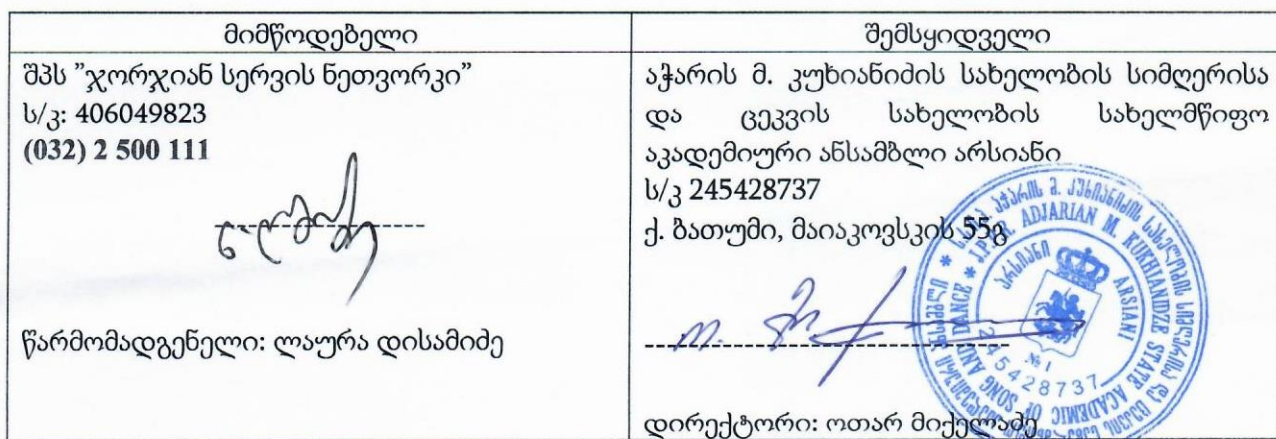 მიმწოდებელი
შპს ”ჯორჯიან სერვის ნეთვორკი”
ს/კ: 406049823
(032) 2 500 111
წარმომადგენელი: ლაურა დისამიძე
შემსყიდველი
აჭარის მ. კუხიანიძის სახელობის სიმღერისა
და ცეკვის სახელობის სახელმწიფო
აკადემიური ანსამბლი არსიანი
ს/კ 245428737
ქ. ბათუმი, მაიაკოვსკის 55გ
დირექტორი: ოთარ მიქელაძე
ADJARIAN M. KUKHIANIDZE STATE ACADEMIC OF SONG AND DANCE
არსიანი
ARSIANI
№ 1
245428737